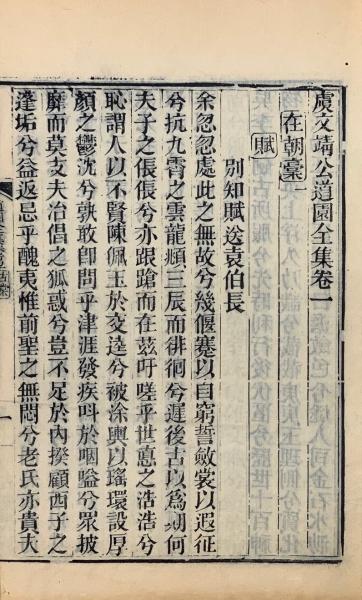 虞文靖公道園全集卷一
在朝稾一
賦
別知賦送袁伯長
余忽忽處此之無故兮幾偃蹇以自窮誓斂裳以遐征
兮抗九霄之雲龍頫三辰而徘徊兮遲後古以爲期何
夫子之倀倀兮亦踉蹌而在玆吁嗟乎世悳之浩浩兮
恥謂人以不賢陳佩玉於交逵兮被涂輿以瑤環設厚
顏之鬱沈兮孰敢卽問乎津涯發疾呌於咽嗌兮眾披
靡而莫支夫冶倡之狐惑兮豈不足於內揆顧西子之
逢垢兮益返忌乎醜夷惟前聖之無悶兮老氏亦貴夫